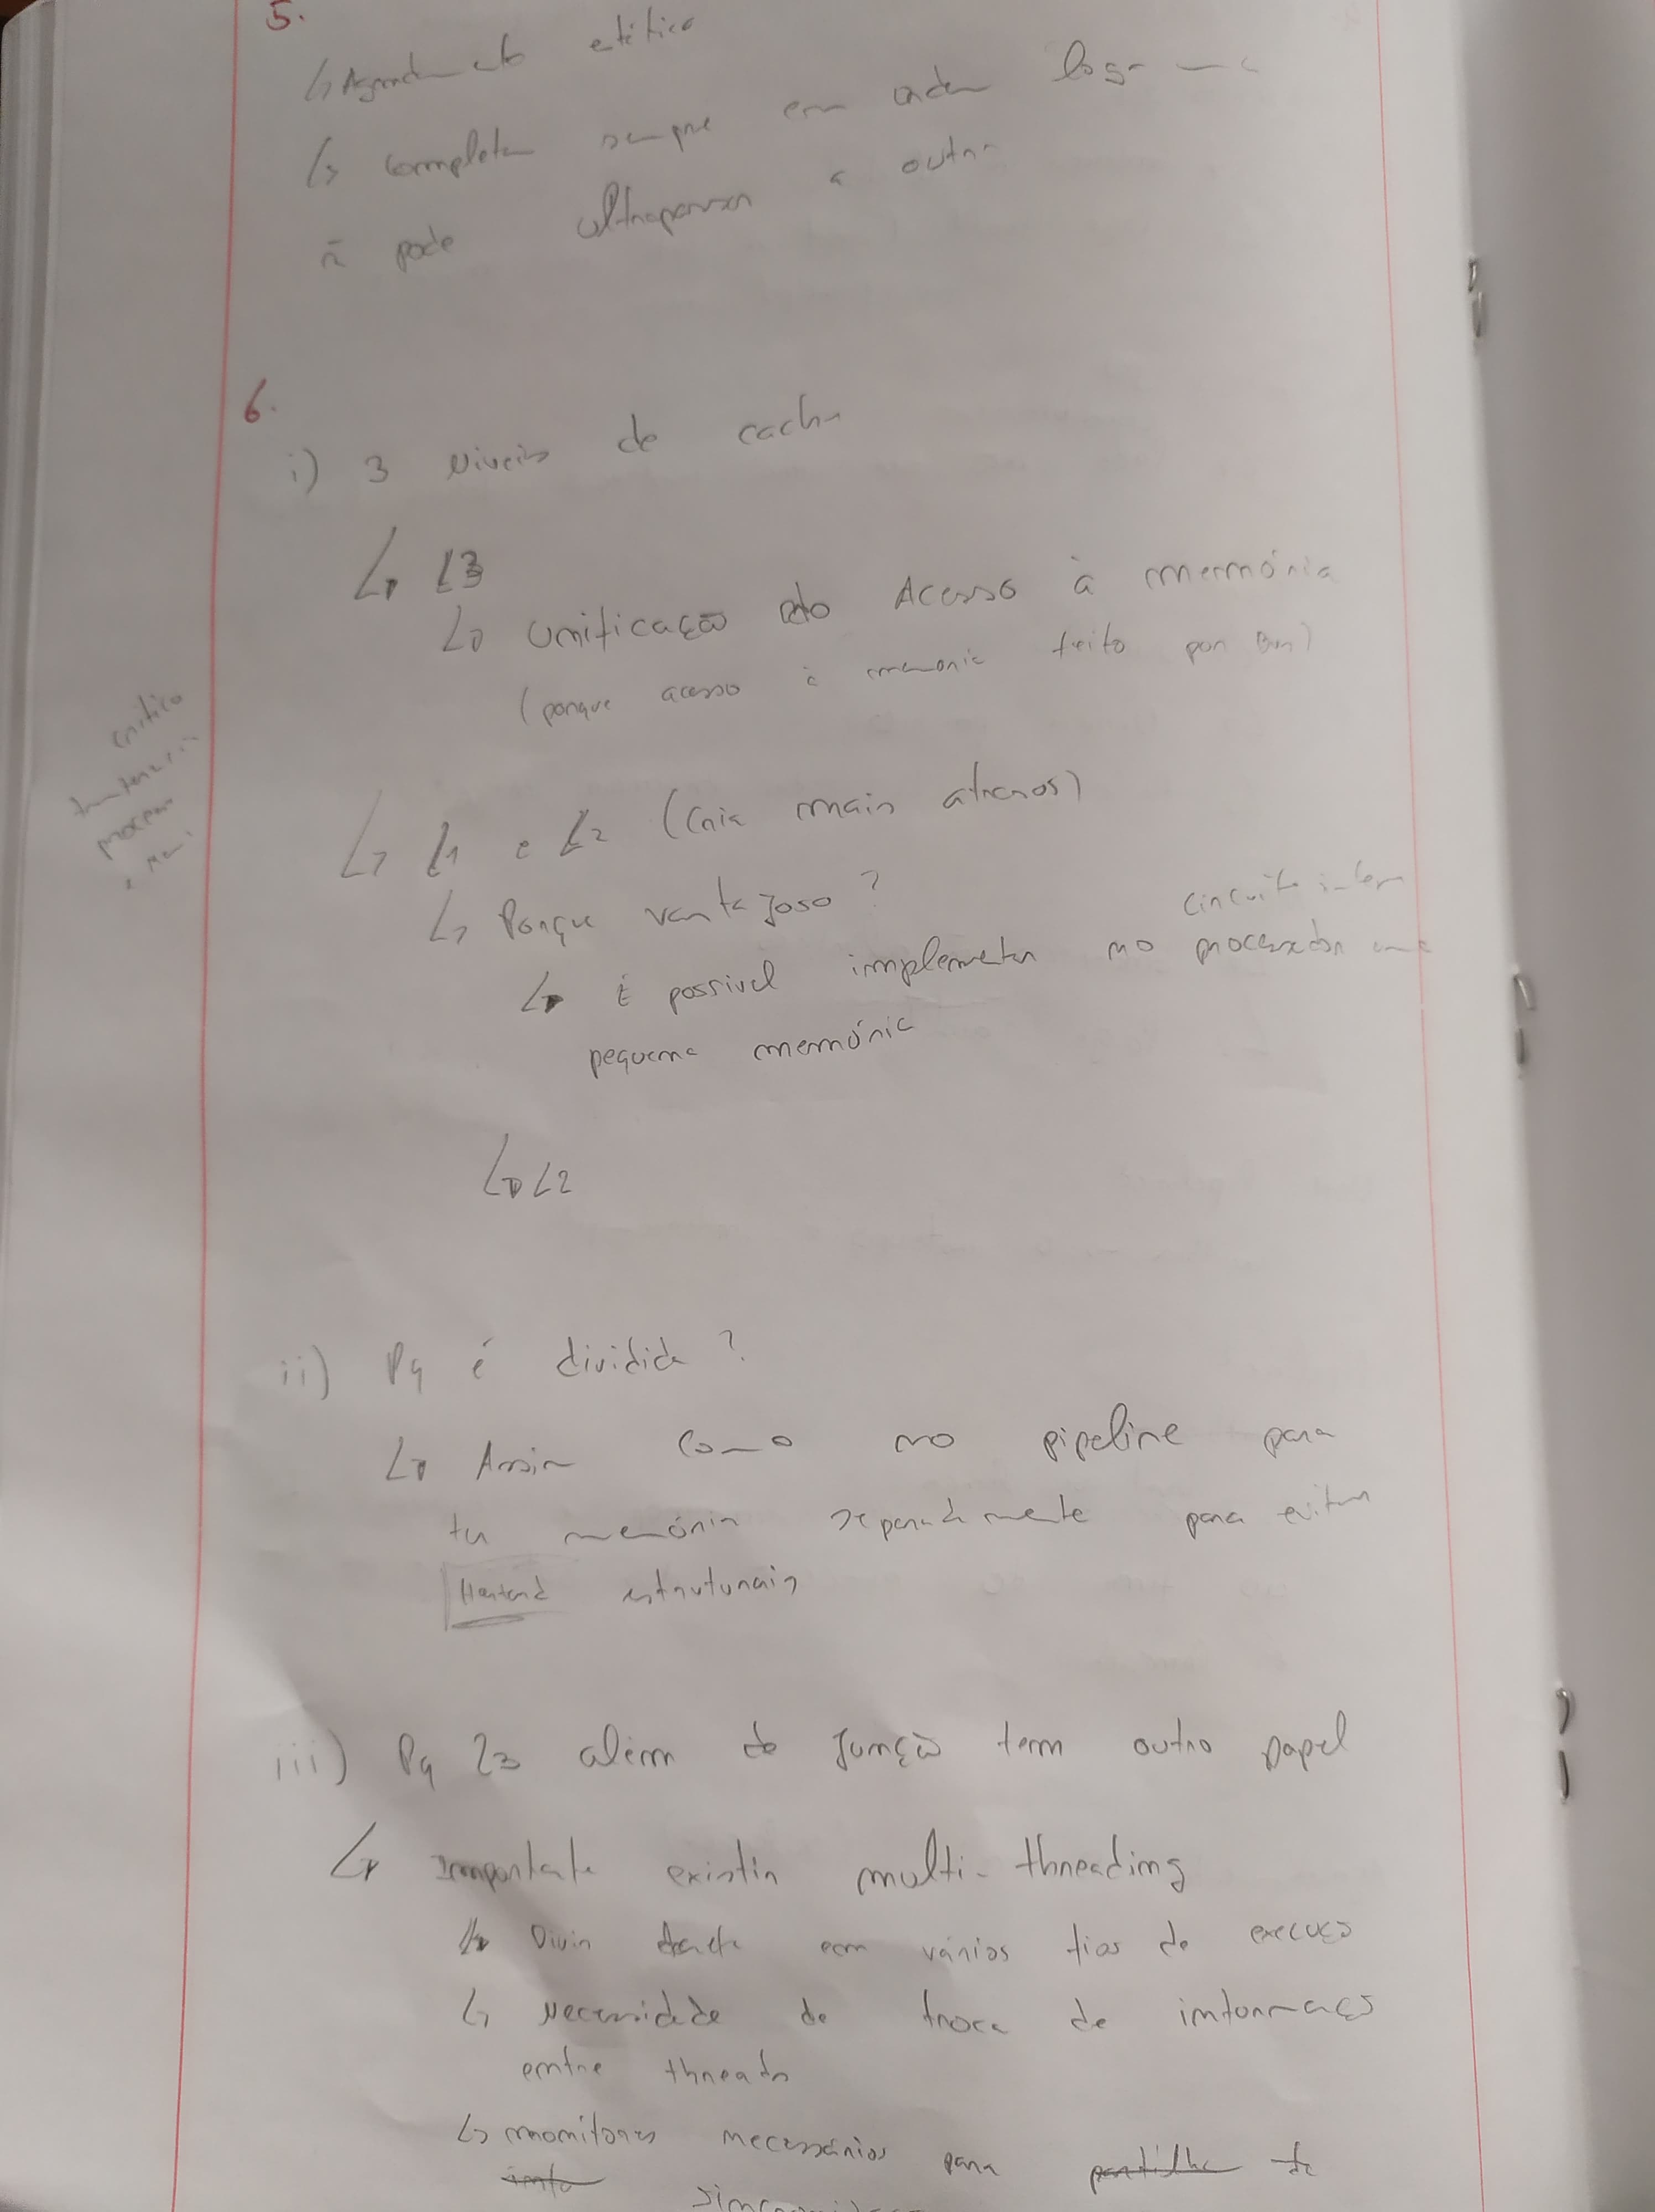 5.
↳ Agendamento estático
↳ completam sempre em ordem logo uma
ñ pode ultrapassar a outra
6.
i) 3 níveis de cache
↳ L3
↳ Unificação do Acesso à memória
(porque acesso à memoria feito por Bus)
crítico
↳ L1 e L2 (Cria mais atrasos)
↳ Porque vantajoso?
circuito intern
↳ É possivel implementar no processador uma
pequena memória
↳ L2
ii) Pq é dividida?
↳ Assim como no pipeline para
ter memória separadamente para evitar
Hazard estruturais
iii) Pq L3 além de junção tem outro papel
↳ Importante existir multi-threading
↳ Divir em vários fios de execução
↳ Necessidade de troca de informação
entre threads
↳ monitores necessários para partilha de